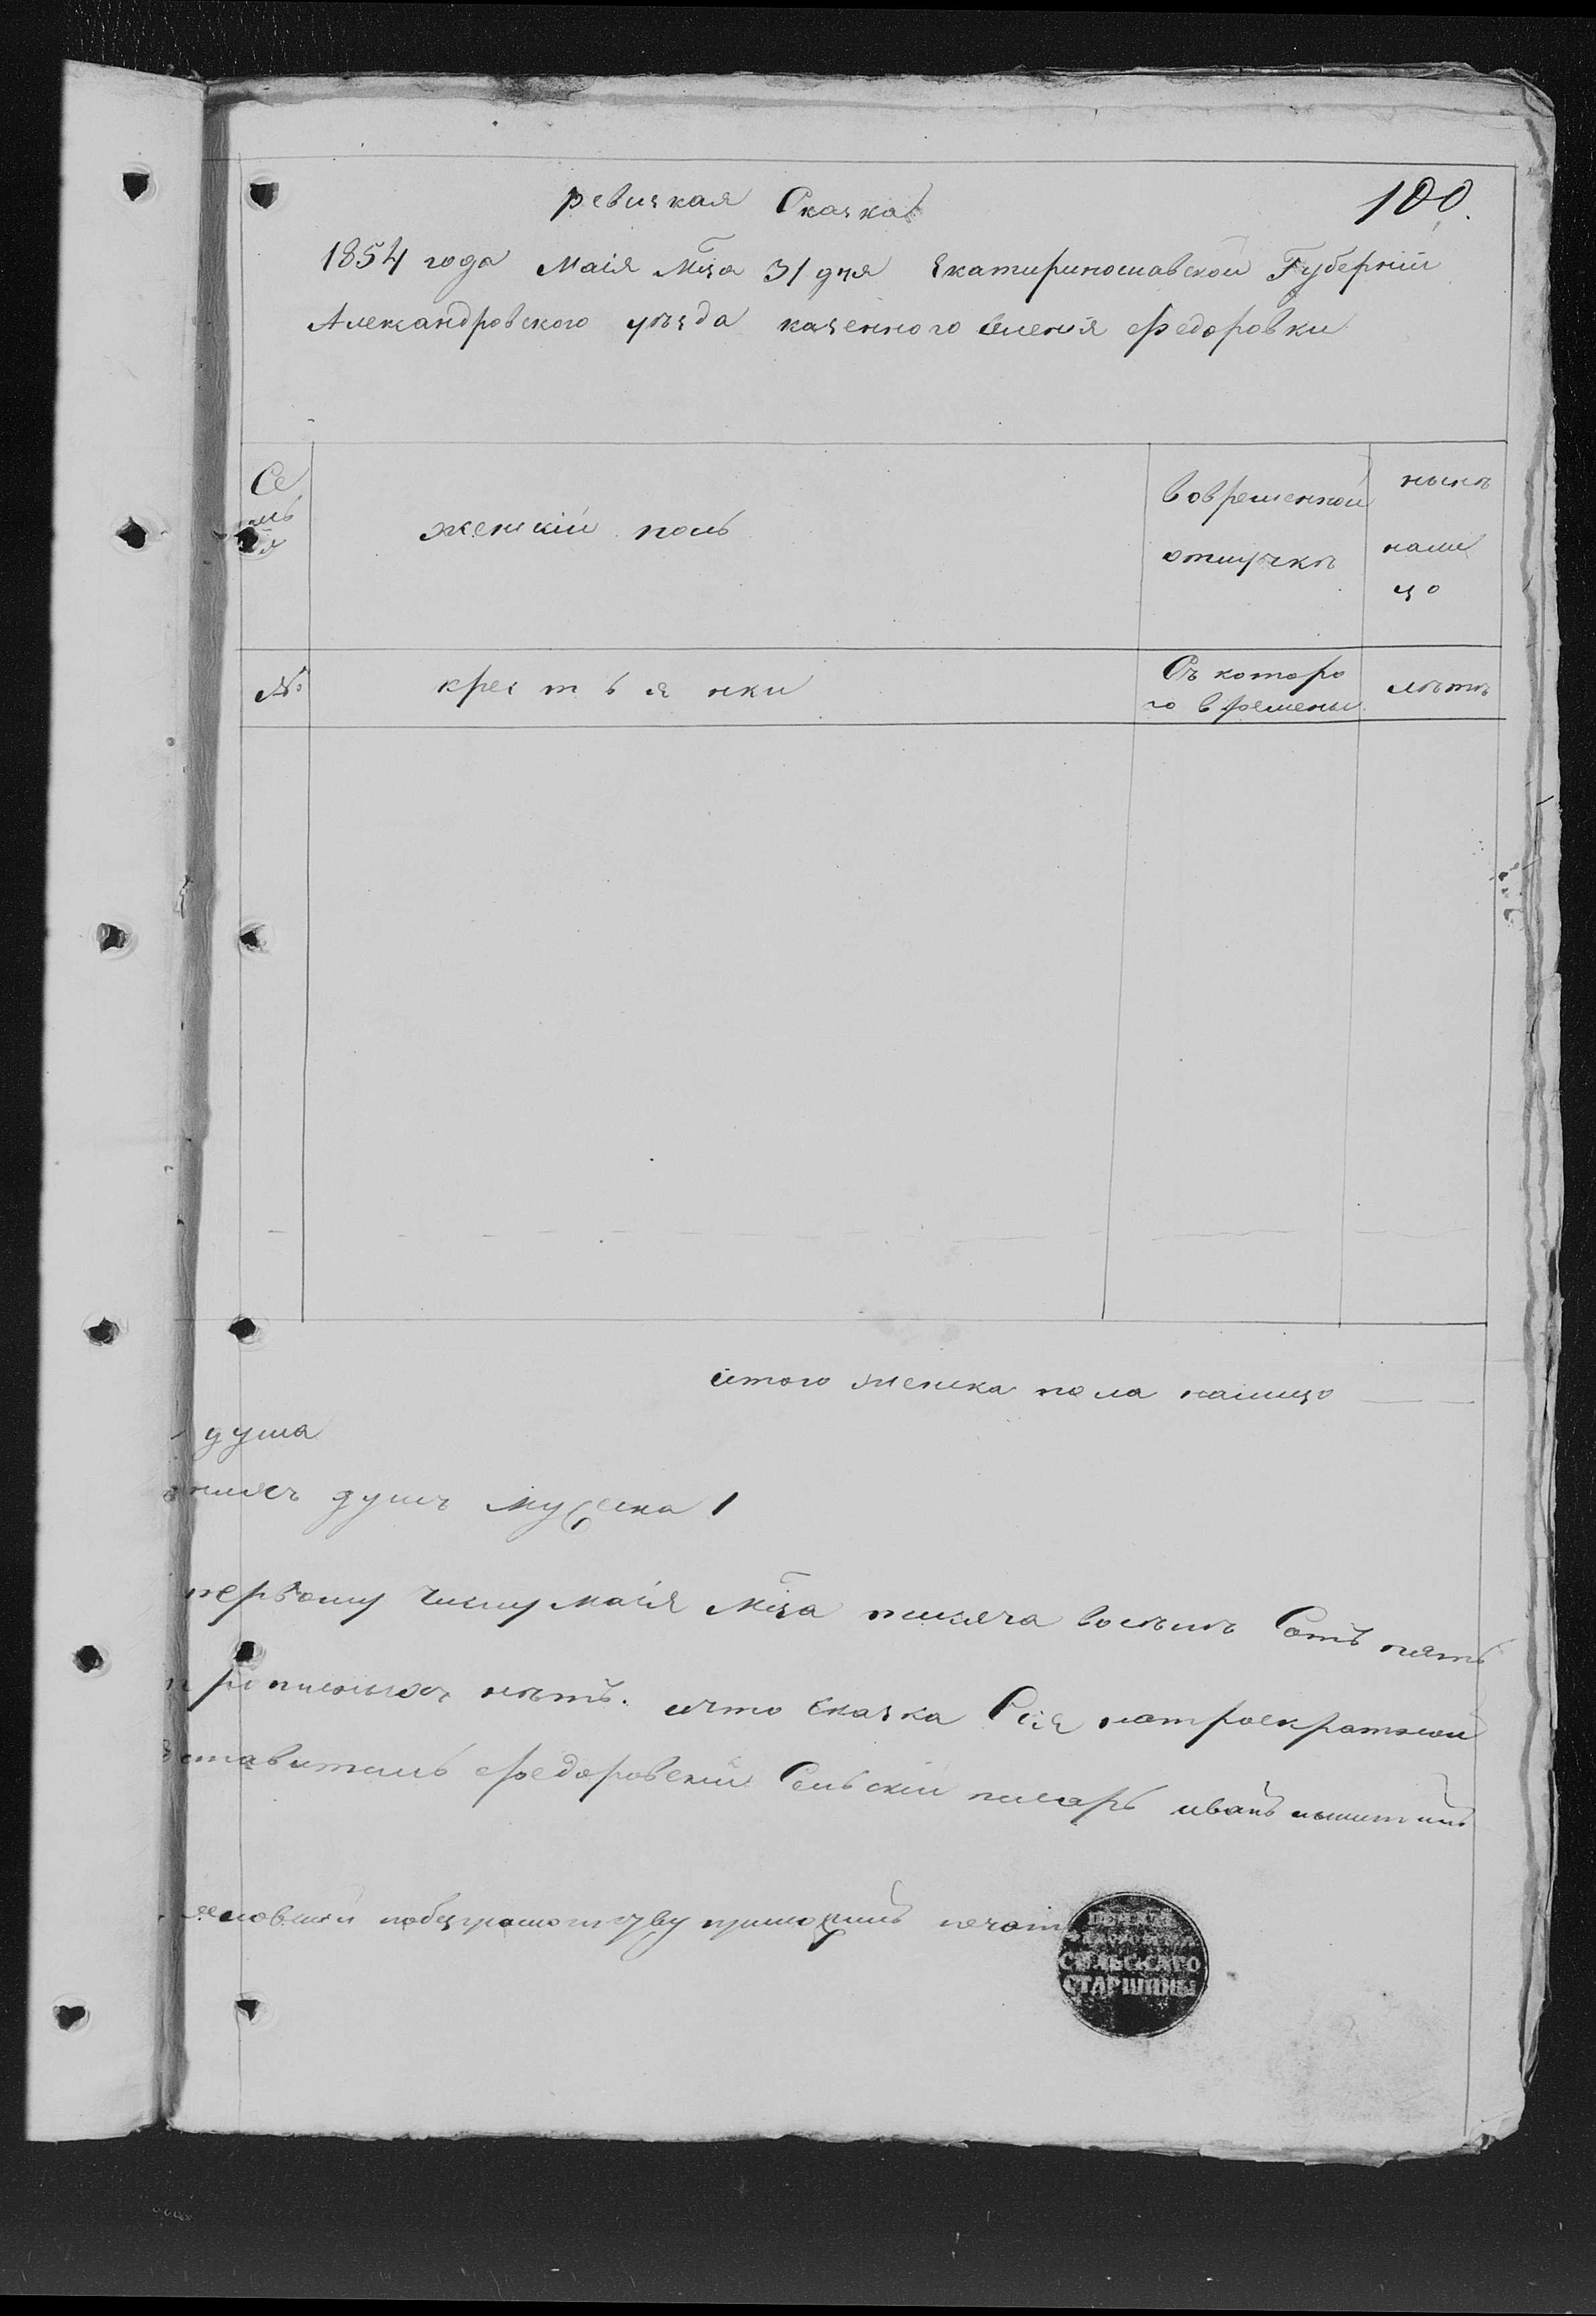 ревизкая Сказка
100.
1854 года Маія Мца 31 дня Екатиринославской Губерніи
Александровского уѣзда казенного Селенія Федоровки
Се
мь
я
женскій поль
вовременной
отлучкѣ
нынѣ
нали
цо
№
крестьянки
Съ которо
го времены
лѣтъ
итого женска пола налицо
душа
душъ Мужеска 1
первому числу маія Мца тисяча восѣмъ Сотъ пять
прописныхъ нѣтъ. ичто Сказка Сія потроекратной
ставитель Федоровскій Сельскій писарь иванъ
побезграмотству приложилъ печать
СЕЛЬСКАГО
СТАРШИНЫ